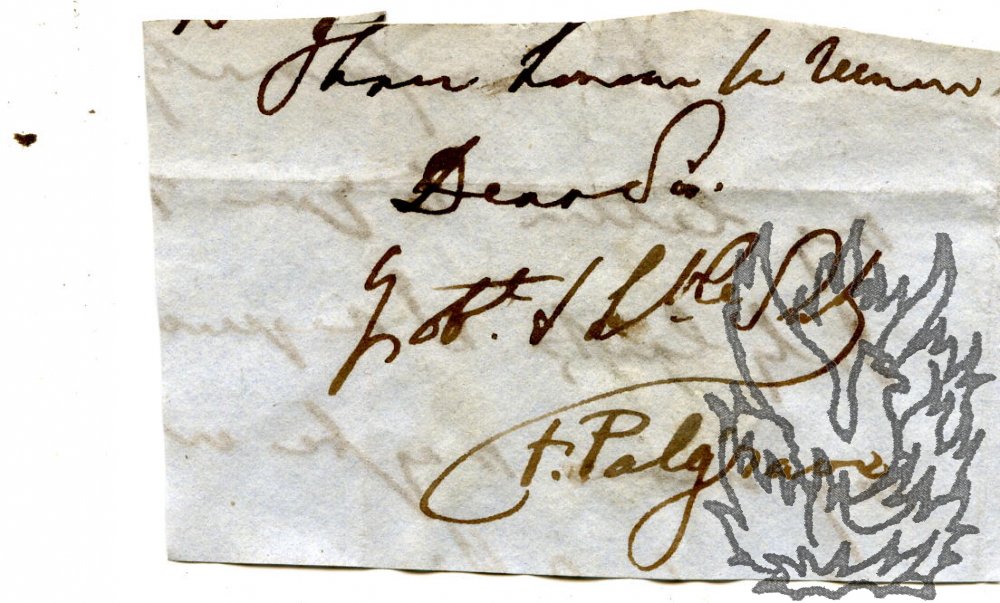 I have honour to remain
Dear Sir.
Yr obt. &
F. Palgrave